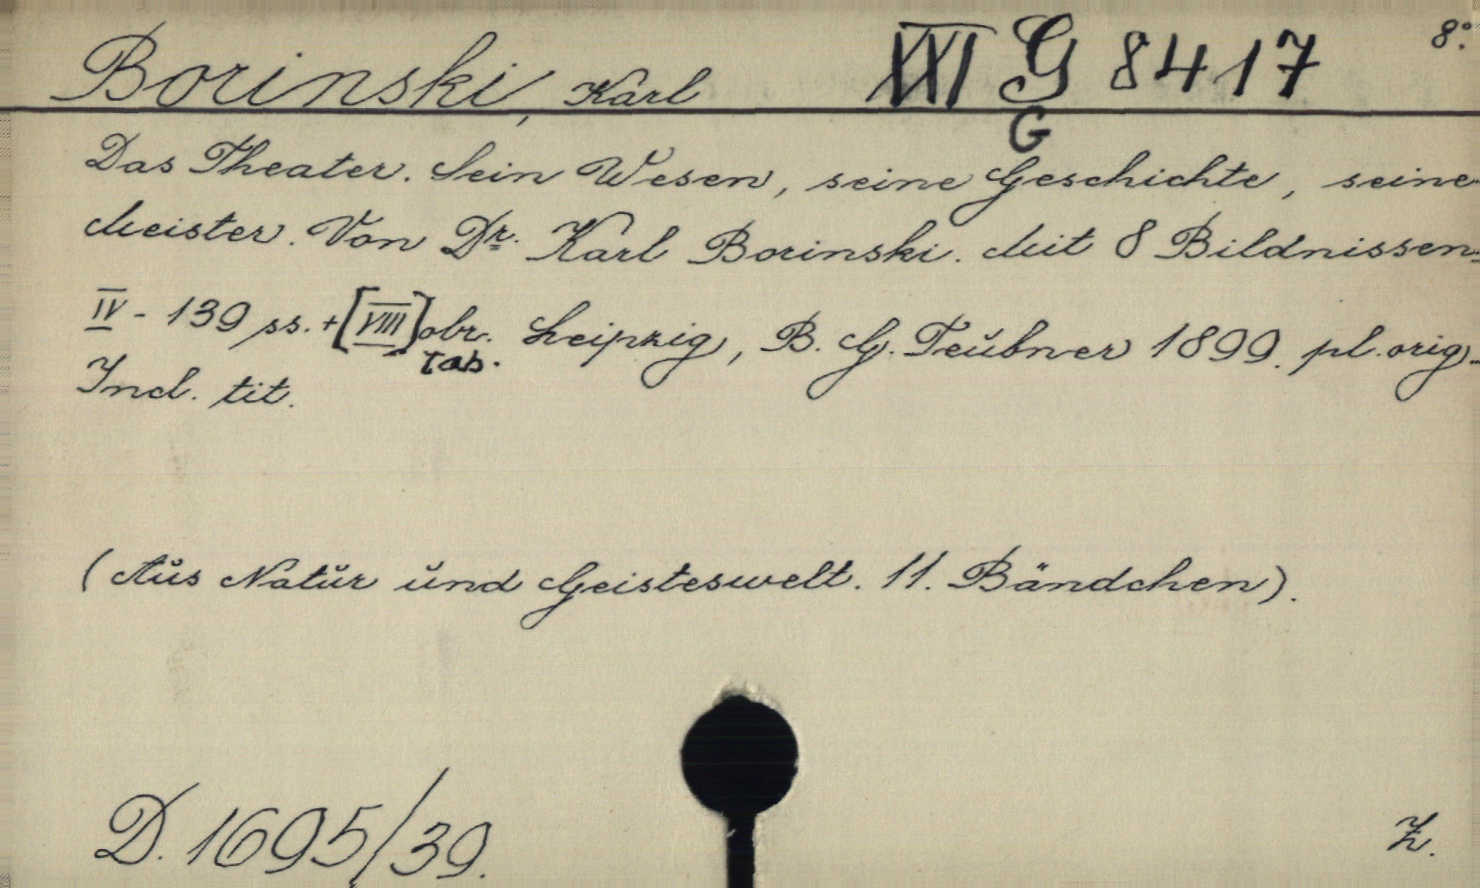 Borinski, Karl XVI G 8417 8°.
G
Das Theater. Sein Wesen, seine Geschichte, seine
Meister. Von Dr. Karl Borinski. Mit 8 Bildnissen.
IV - 139 ss. + [VIII] obr. Leipzig, B. G. Teubner 1899. pl. orig.
Tab.
Incl. tit.
(Aus Natur und Geisteswelt. 11. Bändchen).
D. 1695/39.
Ž.